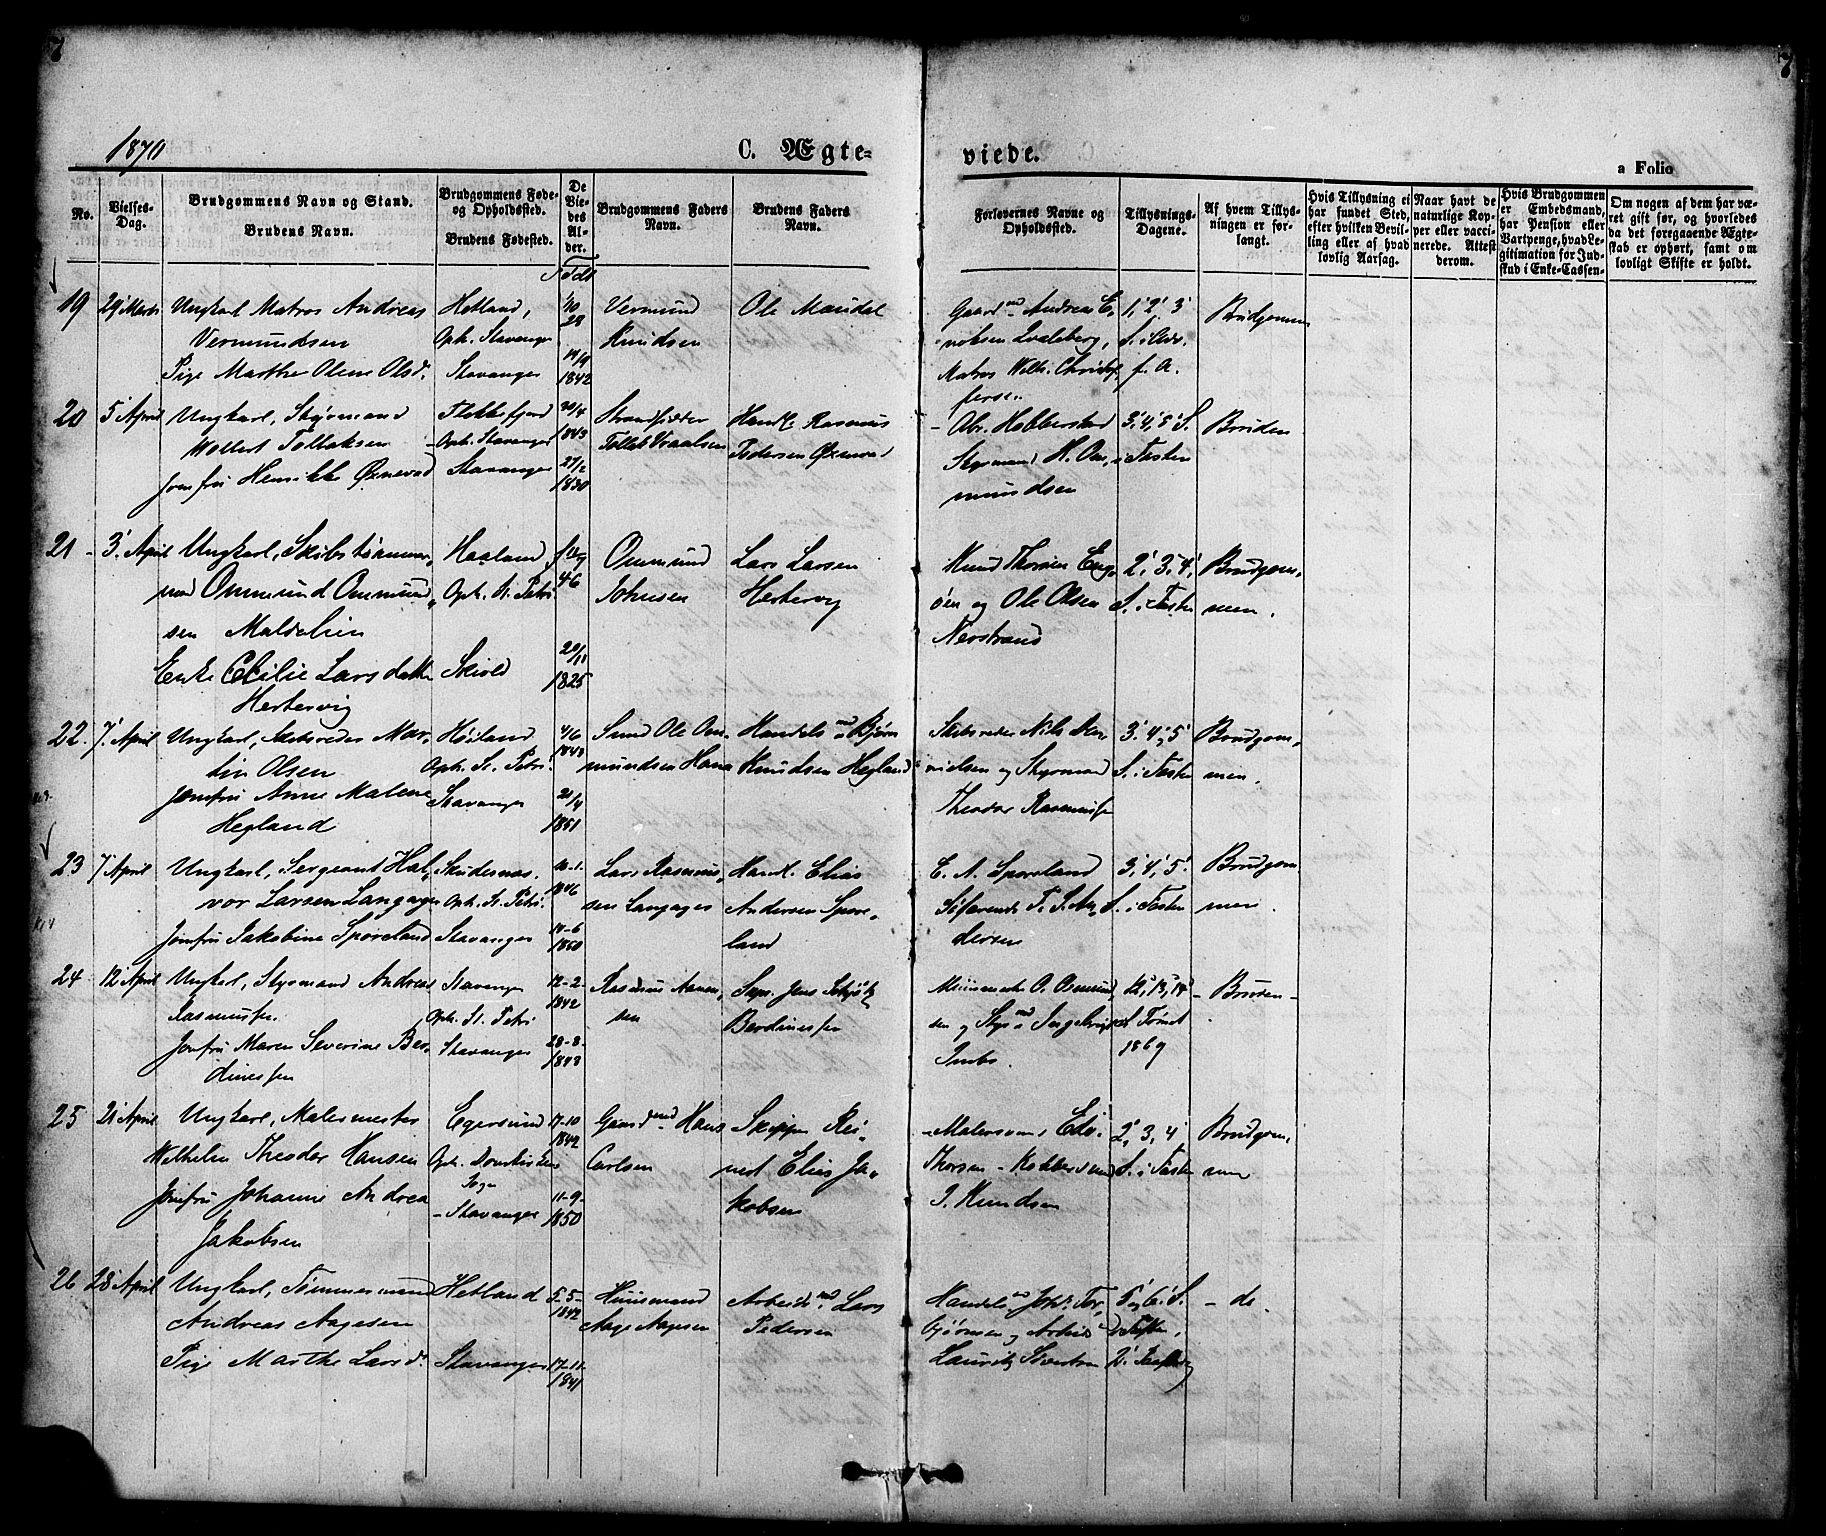 7
7
1870
C. Ægte-
viede.
a Folio
No.
Vielses-
Dag.
Brudgommens Navn og Stand.
Brudens Navn.
Brudgommens Føde-
og Opholdssted.
Brudens Fødested.
De
Vie-
des
Al-
der.
Brudgommens Faders
Navn.
Brudens Faders
Navn.
Forlovernes Navne og
Opholdssted.
Tillysnings-
Dagene.
Af hvem Tillys-
ningen er for-
langt.
Hvis Tillysning ei
har fundet Sted,
efter hvilken Bevil-
ling eller af hvad
lovlig Aarsag.
Naar havt de
naturlige Kop-
per eller vacci-
nerede. Attest
derom.
Hvis Brudgommen
er Embedsmand,
har Pension eller
Vartpenge, hvad Le-
gitimation for Ind-
skud i Enke-Cassen-
Om nogen af dem har væ-
ret gift før, og hvorledes
da det foregaaende Ægte-
skab er ophørt, samt om
lovligt Skifte er holdt.
Født
19
29 Marts
Ungkarl Matros Andreas
Vermundsen
Pige Marthe Olene Olsd.
Hetland,
Oph. Stavanger
Stavanger
1842
Vermund
Knudsen
Ole Maudal
Gaardmd Andreas
Matros Wilh. Christof
fersen
1', 2', 3'
Brudgommen
20
5' April
Ungkarl, Styrmand
Wollert Tollaksen
Jomfru Henrikke Øxnevad
Flekkefjord
Oph. Stavanger
Stavanger
20/4
1843
27/2
1830
Strandsidder
Tollak
Handl. Rasmus
Pedersen Øxnevad
Abr. Hobberstad
Styrmand H. Om,
mundsen
3', 4', 5' S.
i Fasten
Bruden
21
3' April
Ungkarl, Skibstømmer,
md Ommund Ommund,
sen Maldelien
Enke Cecilie Larsdatter
Hertervig
Haaland,
Oph. St. Petri
Skjold
46
1825
Ommund
Johnsen
Lars Larsen
Hertervig
Knud Thorsen Eng,
øen og Ole Olsen
Nerstrand
2', 3', 4',
S. i Fasten
Brudgom,
men.
22.
7' April
Ungkarl, Skibsreder Mar,
tin Olsen
Jomfru Anne Malene
Hegland
Høiland
Oph. St. Petri.
Stavanger
1848
21/4
1851
Ole Om,
mundsen Hana
Handelsmd Bjørn
Knudsen Hegland
Skibsreder Nils
nielsen og Styrmand
Theodor Rasmussen
3', 4', 5'
S. i Fasten
Brudgom,
men.
23
7' April
Ungkarl, Sergeant Hal,
vor Larsen Langager
Jomfru Jakobine Sporeland
Skudesnæs.
Oph. St. Petri.
Stavanger
1846
10-6
1850
Lars Rasmus,
sen Langager
Handl. Elias
Andersen Spore,
land
E. A. Sporeland
Søfarende T. S. An,
dersen
3', 4', 5'.
S. i Fasten
Brudgom
men.
24
12 April
Ungkarl, Styrmand Andreas
Rasmussen
Jomfru Maren Severine Ber,
dinessen
Stavanger
Oph. St. Petri
Stavanger
12-2-
1842
28-8-
1843
Rasmus Aanen,
sen
Jens
Berdinessen
O. Osmund,
sen og Ingebrigt
12', 13', 14'
1869
Bruden
25
21' April
Ungkarl, Malermester
Wilhelm Theodor Hansen
Jomfru Johanne Andrea
Jakobsen
Egersund
Oph. Domkirkens
Sogn
Stavanger
17-10
1842
11-9-
1850
Gaardmd Hans
Carlsen
Skipper Rei,
nert Elias Ja,
kobsen
Thorsen
J. Knudsen
2', 3', 4'
S. i Fasten
Brudgom,
men
26
28' April
Ungkarl, Tømmermand
Andreas Aagesen
Pige Marthe Larsd.
Hetland
Stavanger
5-5-
1842
17-11-
1841
Huusmand
Aage Aagesen
Arbeidsmd Lars
Pedersen
Handelsmd Joh. Tor,
bjørnsen og Arbeidsmd
Lauritz
5' og 6' S.
do.